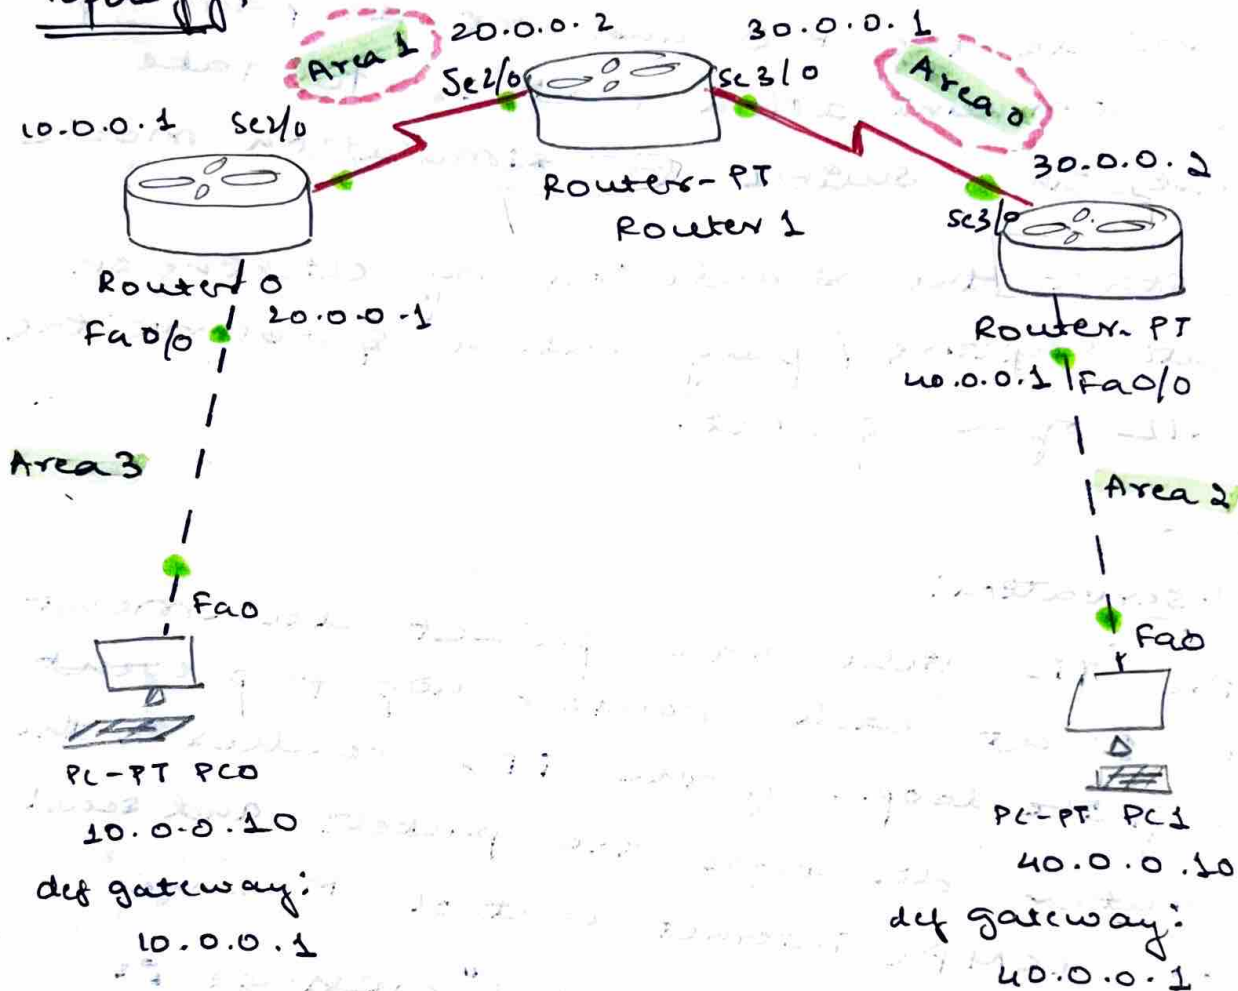 Topology:
Area 1
20.0.0.2
30.0.0.1
Area 0
Se2/0
Se3/0
10.0.0.1
Se2/0
30.0.0.2
Router-PT
Router 1
Se3/0
Router 0
Fa0/0
20.0.0.1
Router-PT
40.0.0.1
Fa0/0
Area 3
Area 2
Fa0
Fa0
PC-PT PC0
10.0.0.10
def gateway:
10.0.0.1
PC-PT PC1
40.0.0.10
def gateway:
40.0.0.1